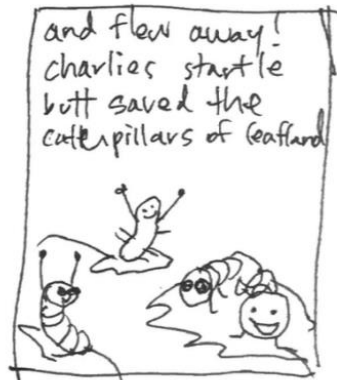 and flew away!
charlies startle
butt saved the
caterpillars of leafland